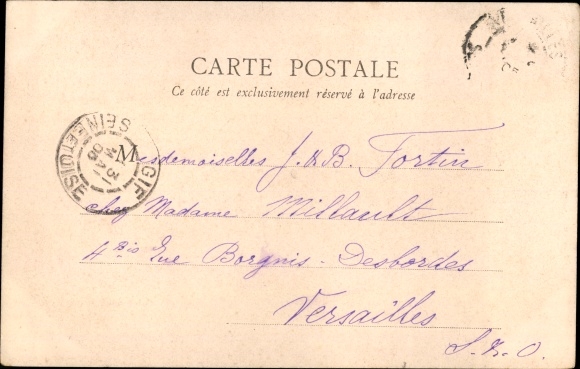 CARTE POSTALE
Ce côté est exclusivement réservé à l'adresse
Mesdemoiselles J. & B. Fortin
chez Madame Millault
4 Bis Rue Borgnis-Desbordes
Versailles
S.&.O.
GIF
SEINE-ET-OISE
3
MAI
05